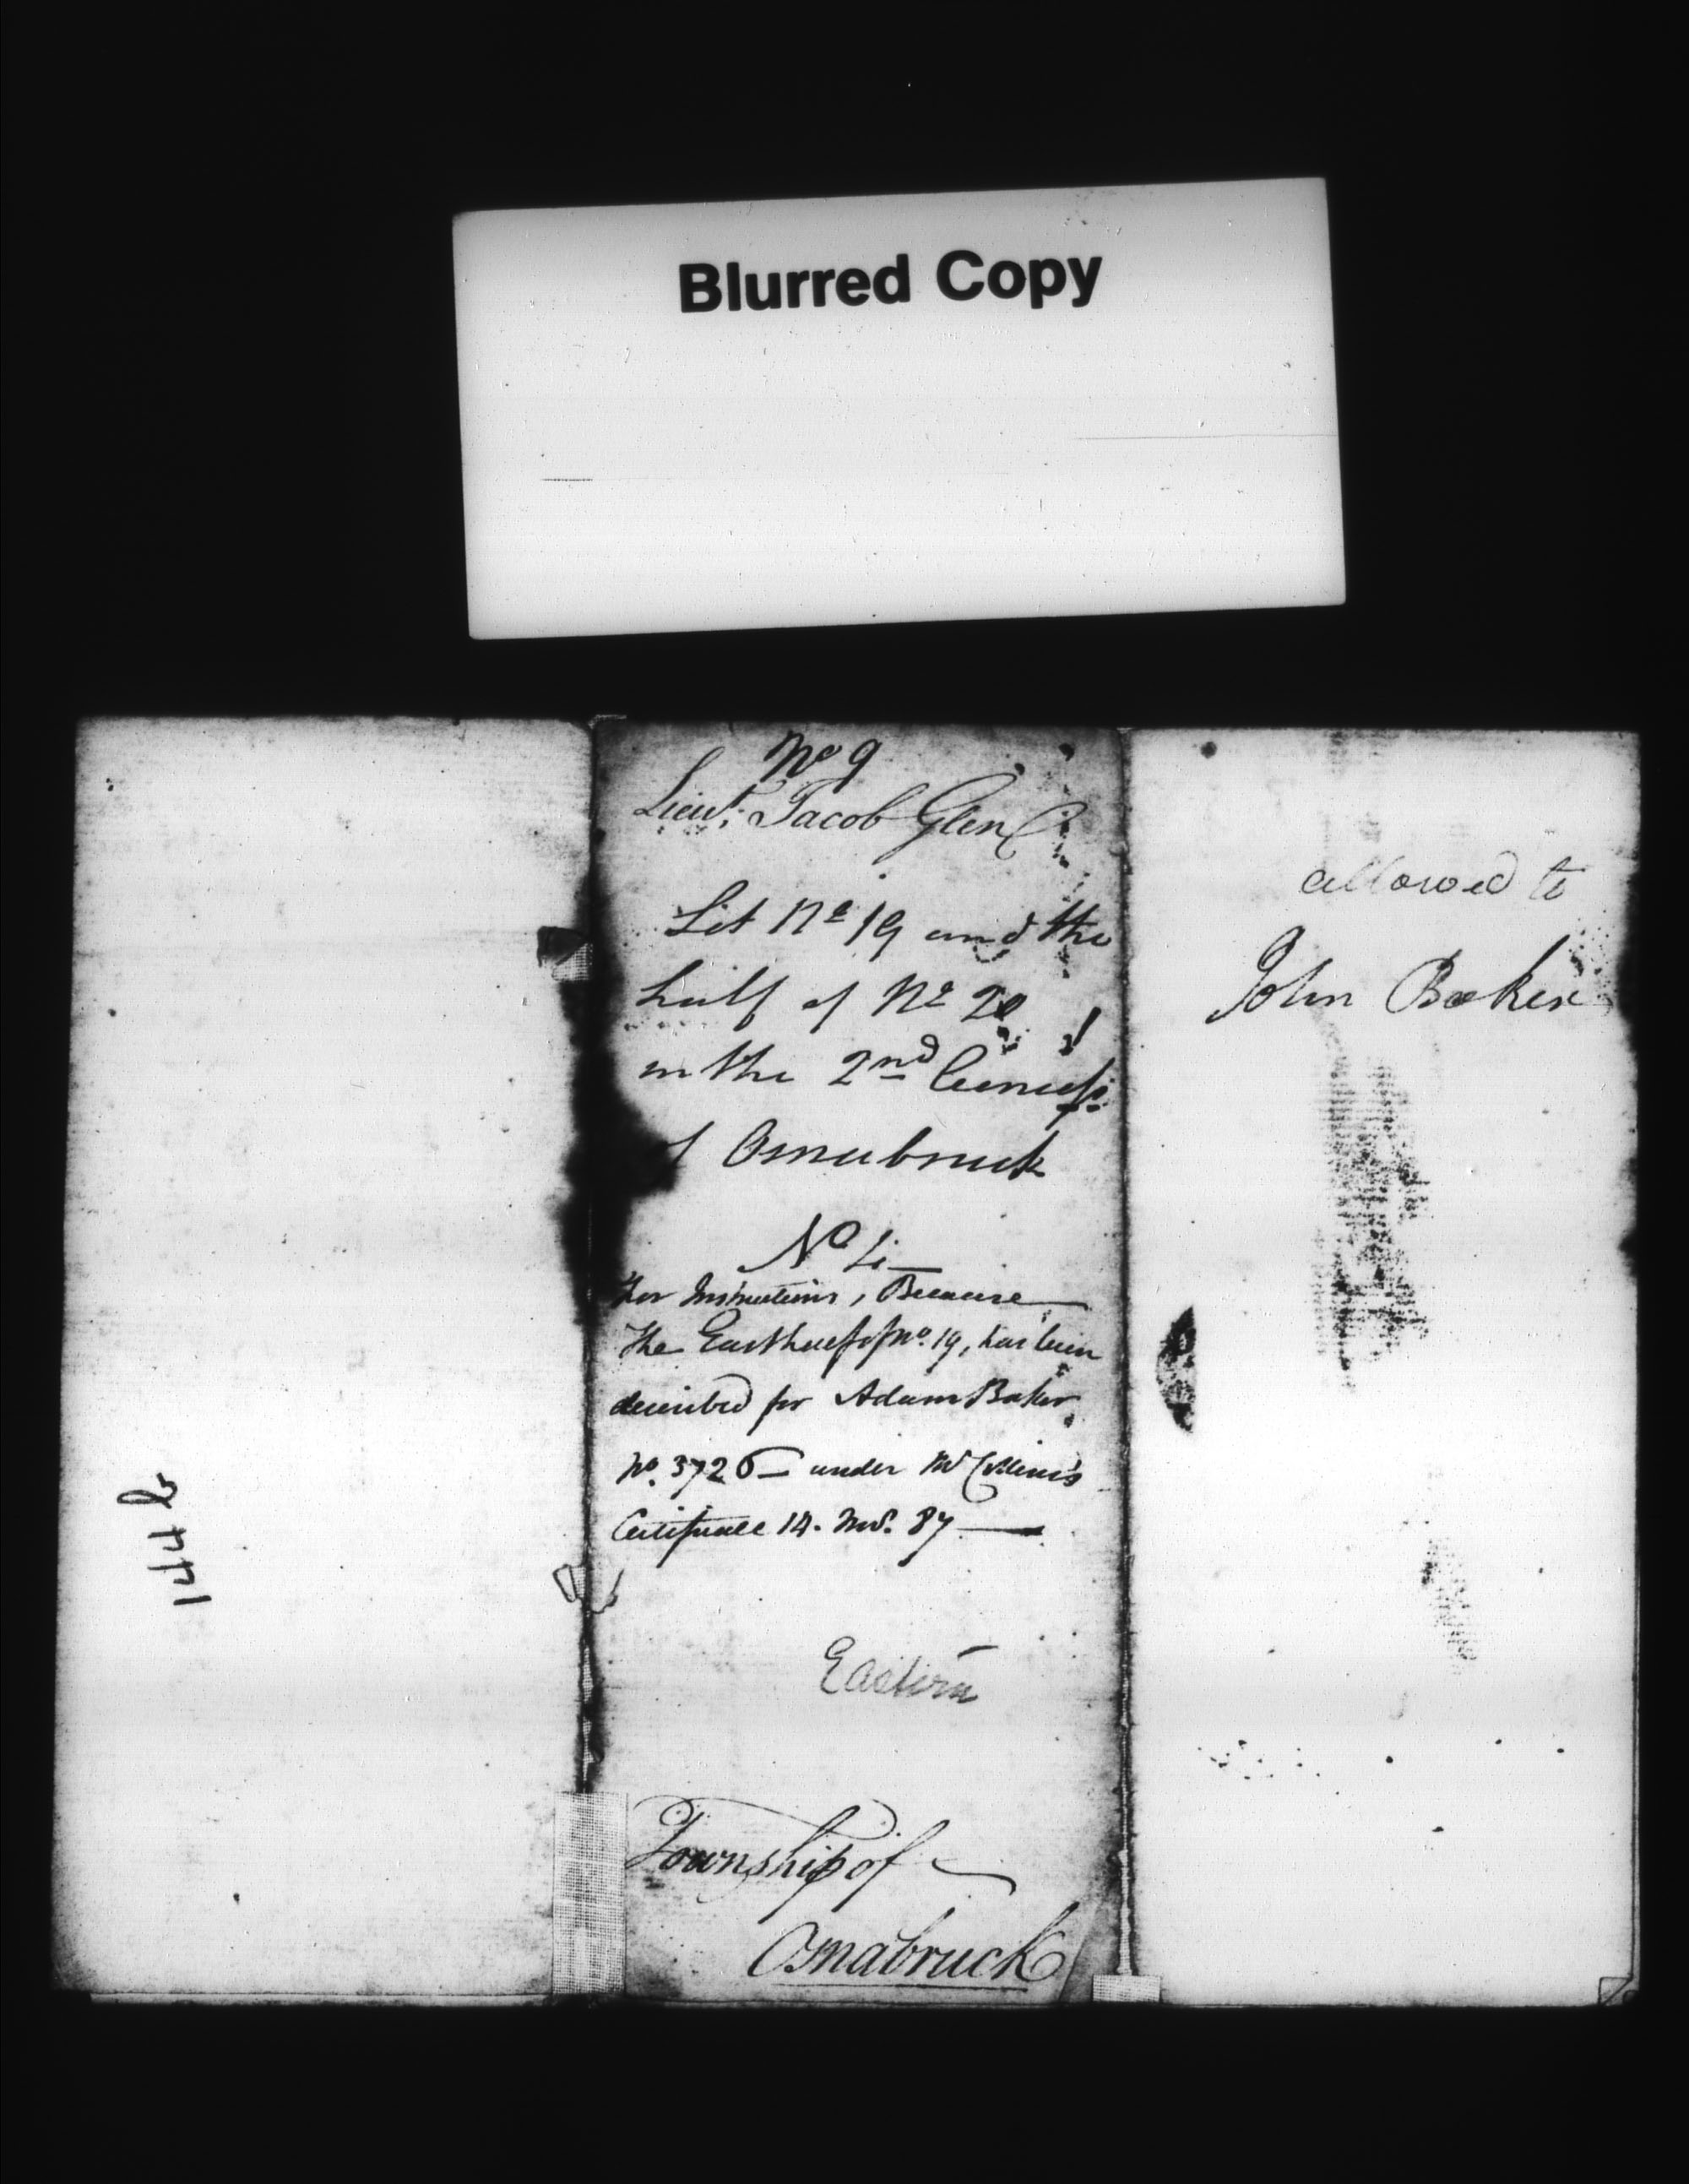 Blurred Copy
No 9
Lieut. Jacob Glen
Lot No 19 and the
half of No 20
in the 2nd Concess
of Osnabruck
No
For Instructions, Because
The East half of No. 19, has been
described for Adam Baker
No. 3726 — under Mr Collins's
Certificate 14. Nov. 87 —
Eastern
Township of
Osnabruck
allowed to
John Baker
144 b